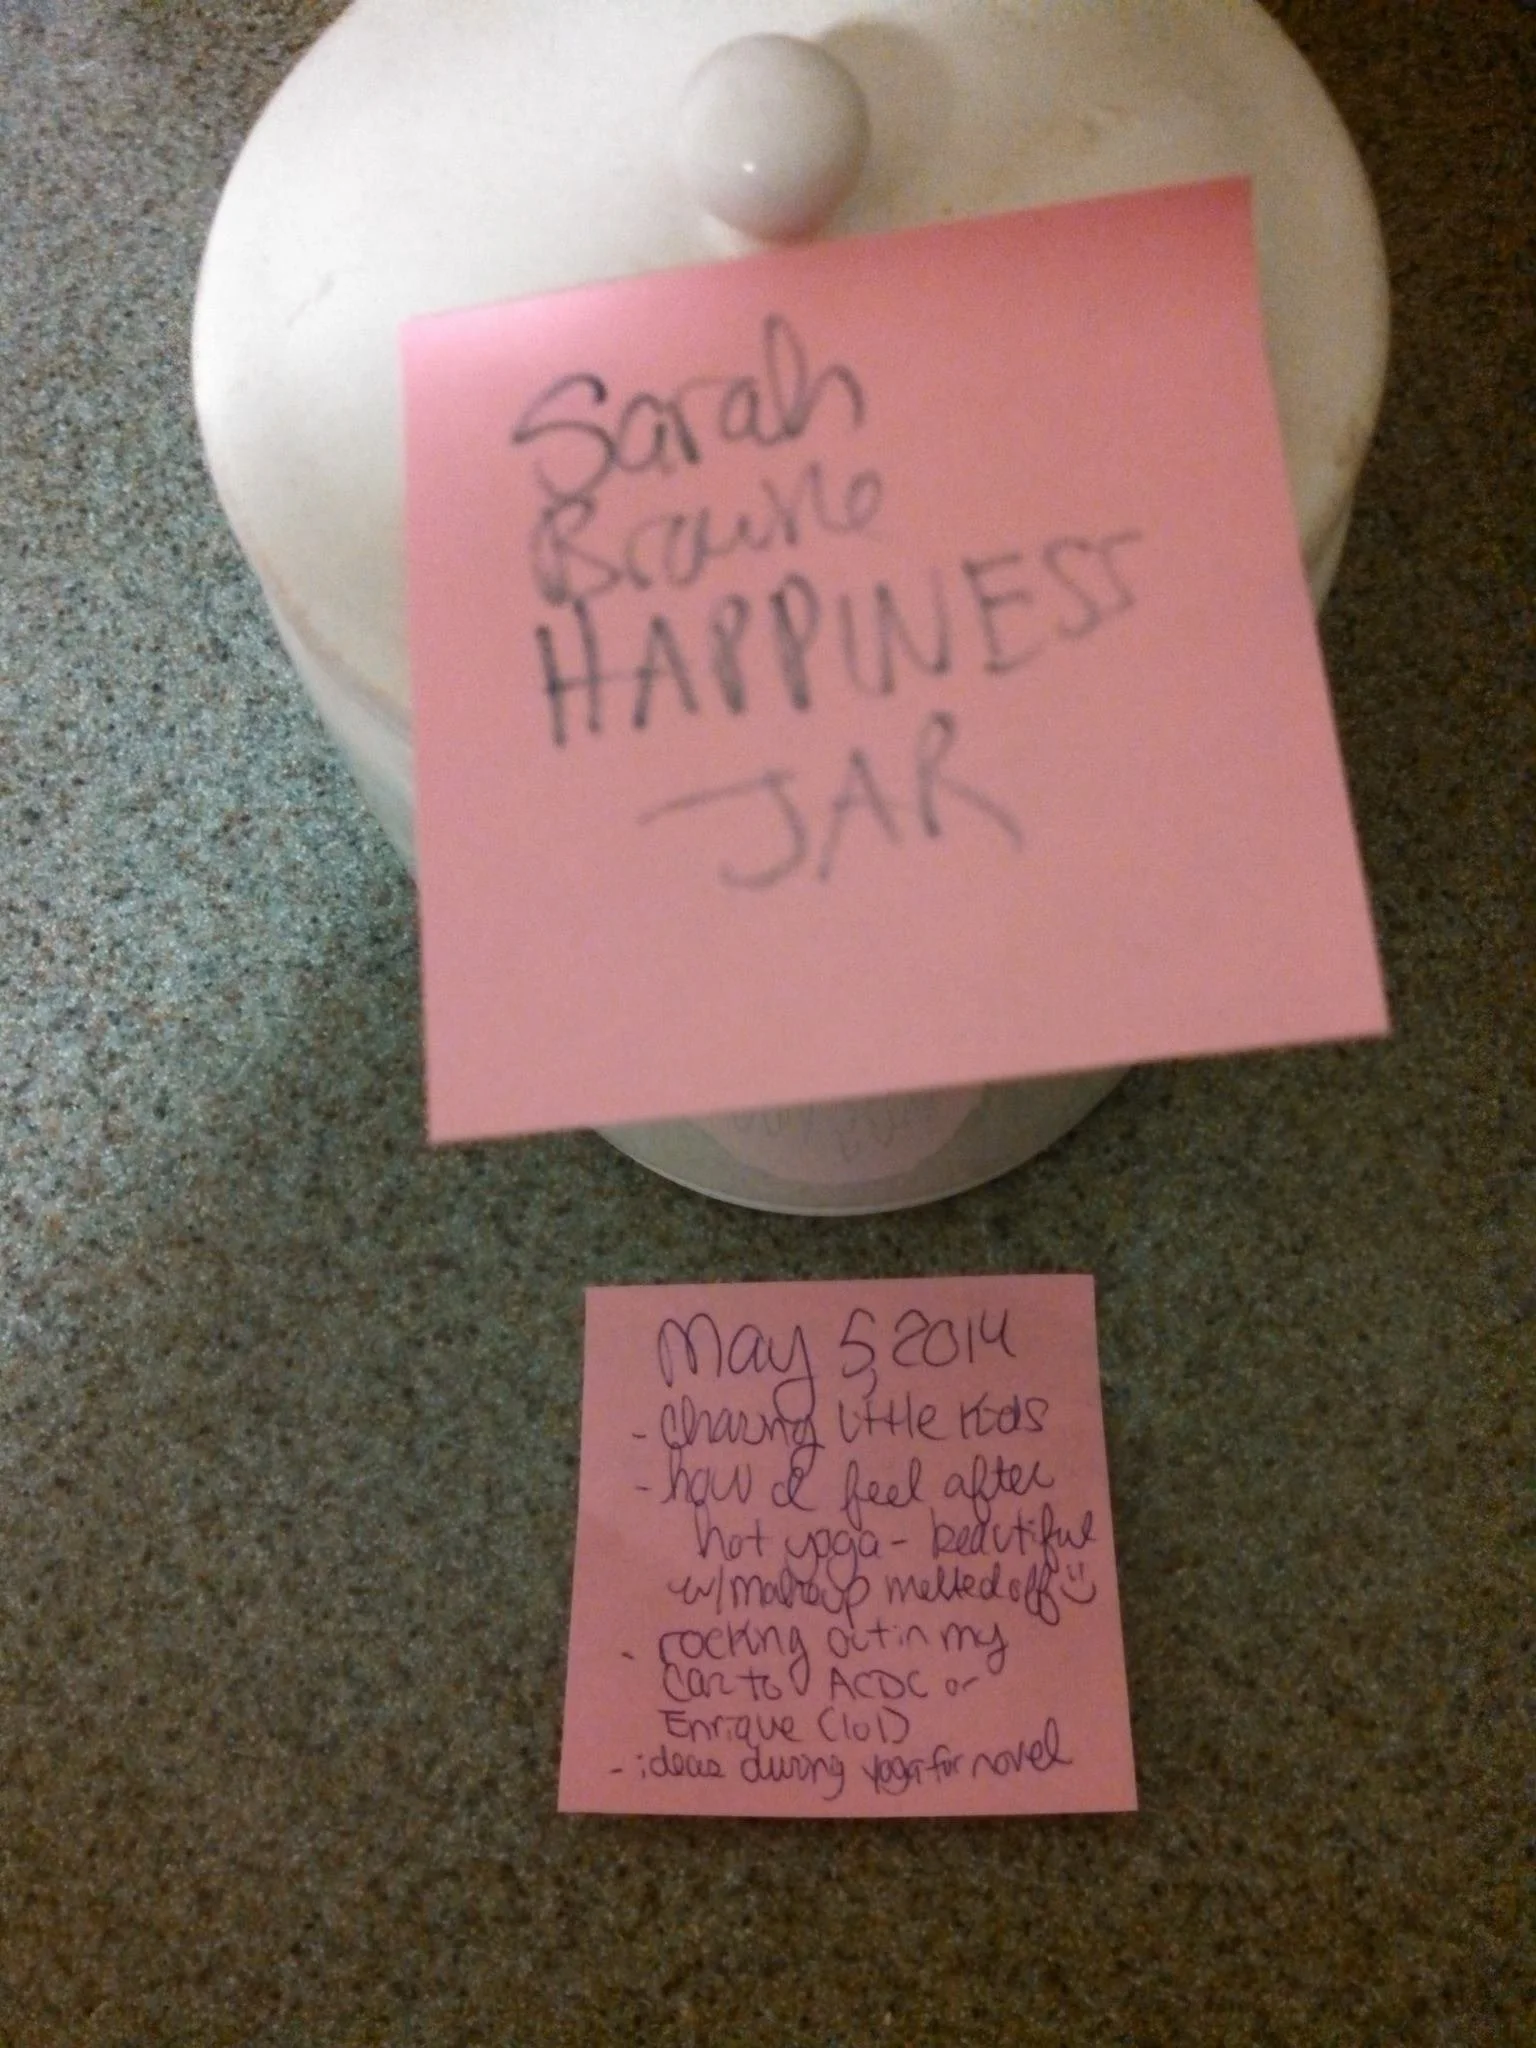 Sarah
HAPPINESS
JAR
May 5, 2014
- Chasing little kids
- how I feel after
hot yoga - beautiful
w/makeup melted off
- rocking out in my
car to ACDC or
Enrique (lol)
- ideas during yoga for novel